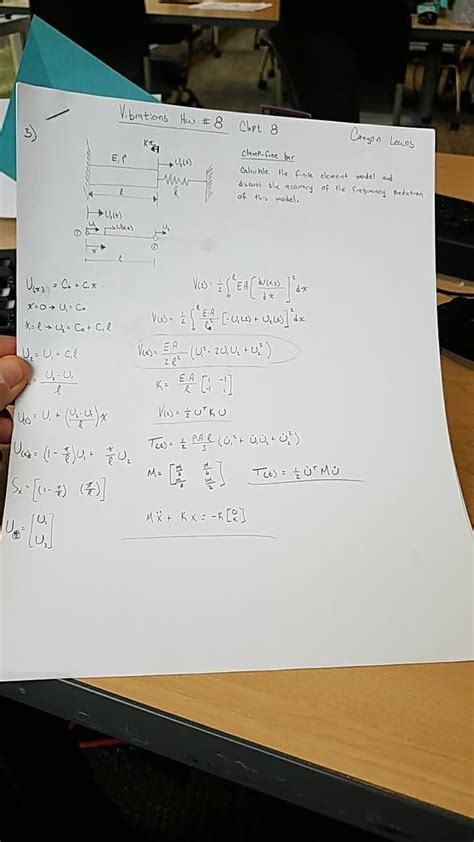 Vibrations Hw #8 Chpt. 8
3)
clamp-free bar
Calculate the finite element model and
discuss the accuracy of the frequency prediction
of this model.
E, ρ
U₂(t)
k
l
U₁(t)
U₁
U₂
①
②
x
l
U(x) = C₀ + C₁x
x=0 → U₁ = C₀
x=l → U₂ = C₀ + C₁l
U₂ = U₁ + C₁l
U₂-U₁/l
U(x) = U₁ + (U₂-U₁/l)x
U(x) = (1 - x/l)U₁ + x/l U₂
Sₓ = [(1 - x/l) (x/l)]
U = [U₁ U₂]
V(t) = 1/2 ∫₀ˡ EA [du(x,t)/dx]² dx
V(t) = 1/2 ∫₀ˡ EA/l² [-U₁(t) + U₂(t)]² dx
V(t) = EA/2l² (U₁² - 2U₁U₂ + U₂²)
K = EA/l [1 -1 -1 1]
V(t) = 1/2 Uᵀ K U
T(t) = 1/2 ρAl/3 (U̇₁² + U̇₁U̇₂ + U̇₂²)
T(t) = 1/2 U̇ᵀ M U̇
Mẍ + Kx = -K[0 x]